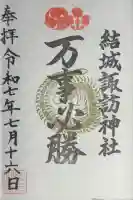 結城諏訪神社
万事必勝
奉拝令和七年七月十六日